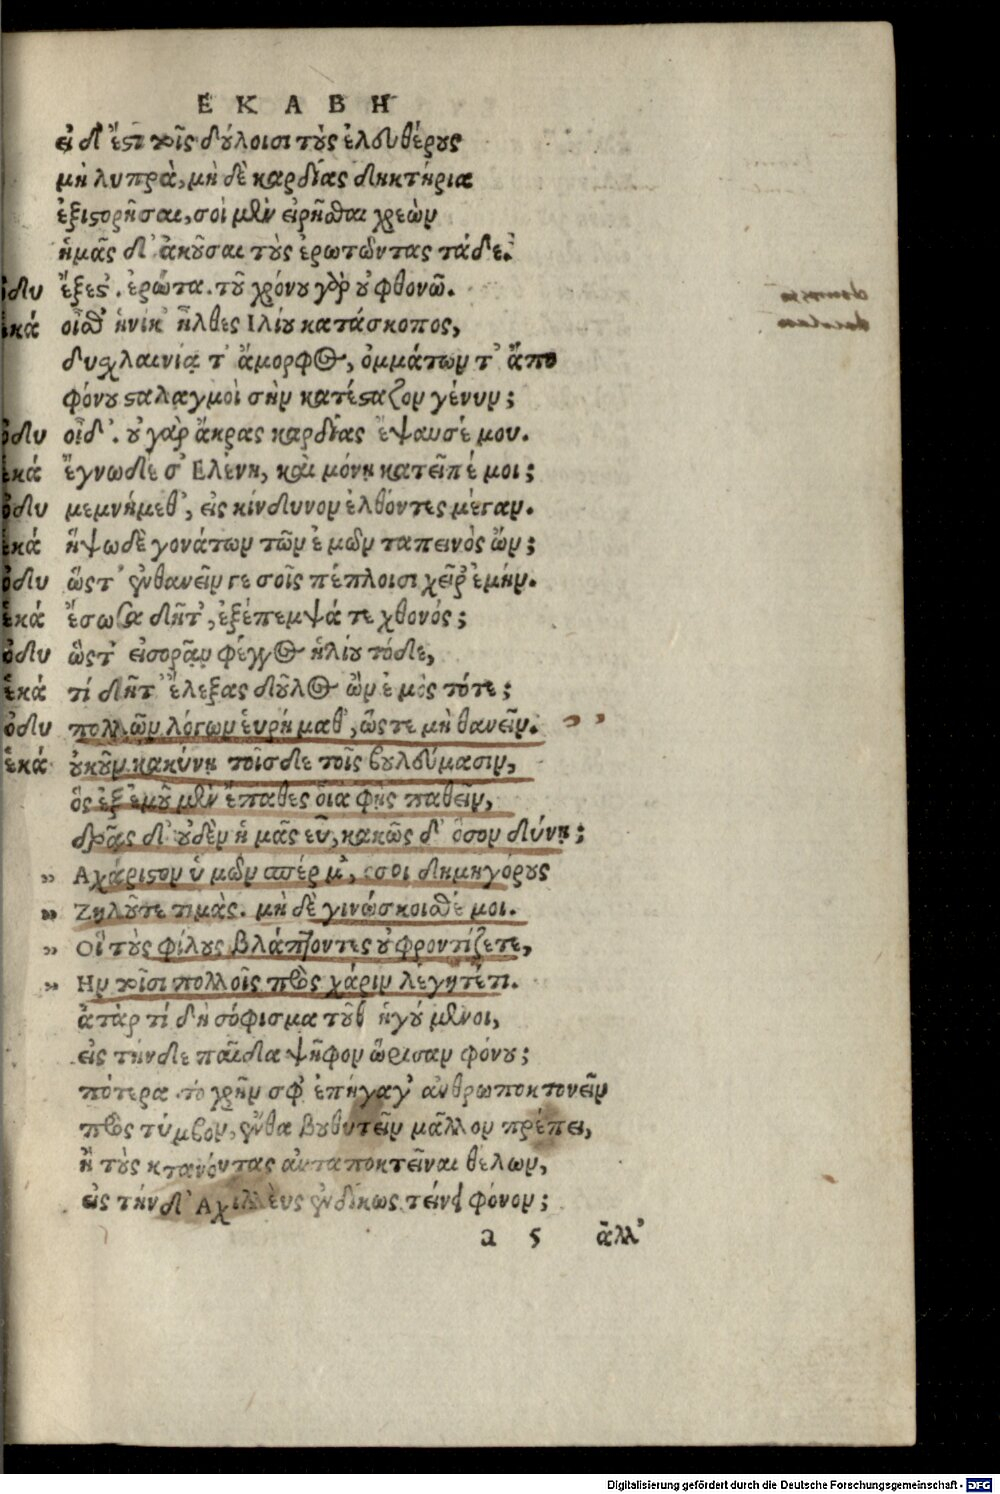 ΕΚΑΒΗ
εἰ δ' ἔστι τοῖς δούλοισι τοὺς ἐλευθέρους
μὴ λυπρὰ, μὴ δὲ καρδίας δηκτήρια
ἐξιστορῆσαι, σοὶ μὲν εἰρῆσθαι χρεὼν
ἡμᾶς δ' ἀκοῦσαι τοὺς ἐρωτῶντας τάδε.
ὀδυ ἔξεστ'. ἐρώτα. τοῦ χρόνου γὰρ οὐ φθονῶ.
ἑκά οἶσθ' ἡνίκ' ἦλθες Ιλίου κατάσκοπος,
δυσχλαινίᾳ τ' ἄμορφος, ὀμμάτων τ' ἄπο
φόνου σταλαγμοὶ σὴν κατέσταζον γένυν;
ὀδυ οἶδ'. οὐ γὰρ ἄκρας καρδίας ἔψαυσέ μου.
ἑκά ἔγνω δέ σ' Ελένη, καὶ μόνη κατεῖπέ μοι;
ὀδυ μεμνήμεθ', εἰς κίνδυνον ἐλθόντες μέγαν.
ἑκά ἥψω δὲ γονάτων τῶν ἐμῶν ταπεινὸς ὤν;
ὀδυ ὥστ' ἐνθανεῖν γε σοῖς πέπλοισι χεῖρ' ἐμήν.
ἑκά ἔσωσα δῆτ', ἐξέπεμψά τε χθονός;
ὀδυ ὥστ' εἰσορᾷν φέγγος ἡλίου τόδε,
ἑκά τί δῆτ' ἔλεξας δοῦλος ὢν ἐμὸς τότε;
ὀδυ πολλῶν λόγων εὑρήμαθ', ὥστε μὴ θανεῖν.
ἑκά οὐκοῦν κακύνῃ τοῖσδε τοῖς βουλεύμασιν,
ὃς ἐξ ἐμοῦ μὲν ἔπαθες οἷα φῂς παθεῖν,
δρᾷς δ' οὐδὲν ἡμᾶς εὖ, κακῶς δ' ὅσον δύνῃ;
„ Αχάριστον ὑμῶν σπέρμ', ὅσοι δημηγόρους
„ Ζηλοῦτε τιμάς. μὴ δὲ γινώσκοισθέ μοι.
„ Οἳ τοὺς φίλους βλάπτοντες οὐ φροντίζετε,
„ Ην τοῖσι πολλοῖς πρὸς χάριν λέγητέ τι.
ἀτὰρ τί δὴ σόφισμα τοῦθ' ἡγούμενοι,
εἰς τήνδε παῖδα ψῆφον ὥρισαν φόνου;
πότερα το χρῆν σφ' ἐπήγαγ' ἀνθρωποκτονεῖν
πρὸς τύμβον, ἔνθα βουθυτεῖν μᾶλλον πρέπει,
ἢ τοὺς κτανόντας ἀνταποκτεῖναι θέλων,
εἰς τήνδ' Αχιλλεὺς ἐνδίκως τείνει φόνον;
a 5 ἀλλ'
Digitalisierung gefördert durch die Deutsche Forschungsgemeinschaft - DFG